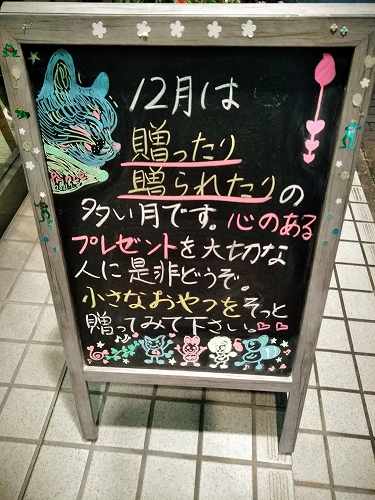 12月は
贈ったり
贈られたりの
多い月です。心のある
プレゼントを大切な
人に是非どうぞ。
小さなおやつをそっと
贈ってみて下さい。